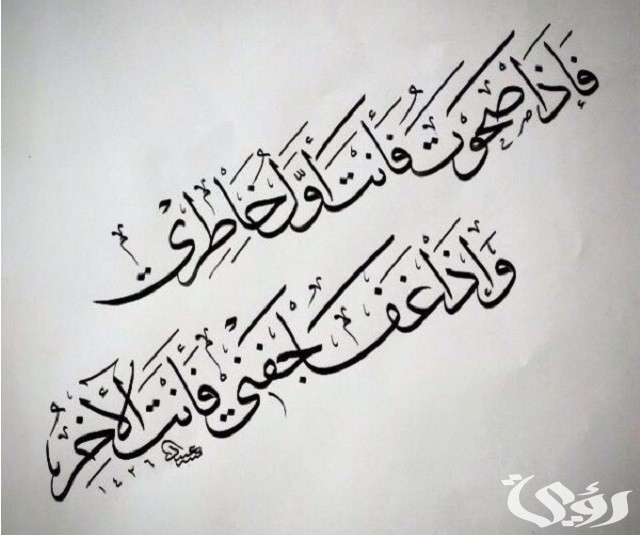 فَإِذَا صَحَوْتُ فَأَنْتَ أَوَّلُ خَاطِرِي
وَإِذَا غَفَا جَفْنِي فَأَنْتَ الْآخِرُ
١٤٢٦
رؤية